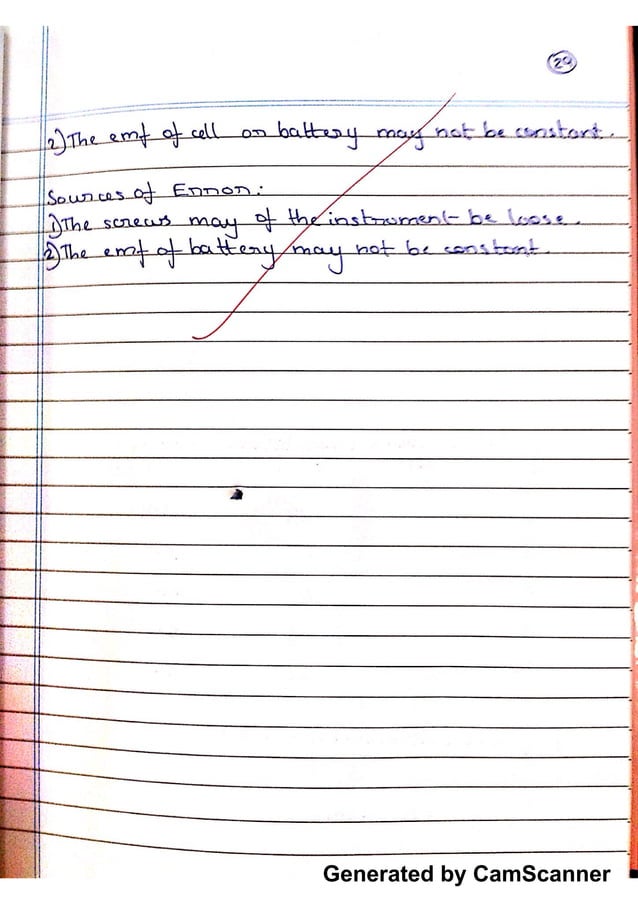 29
2) The emf of cell or battery may not be constant.
Sources of Error:
1) The screws may of the instrument be loose.
2) The emf of battery may not be constant.
Generated by CamScanner